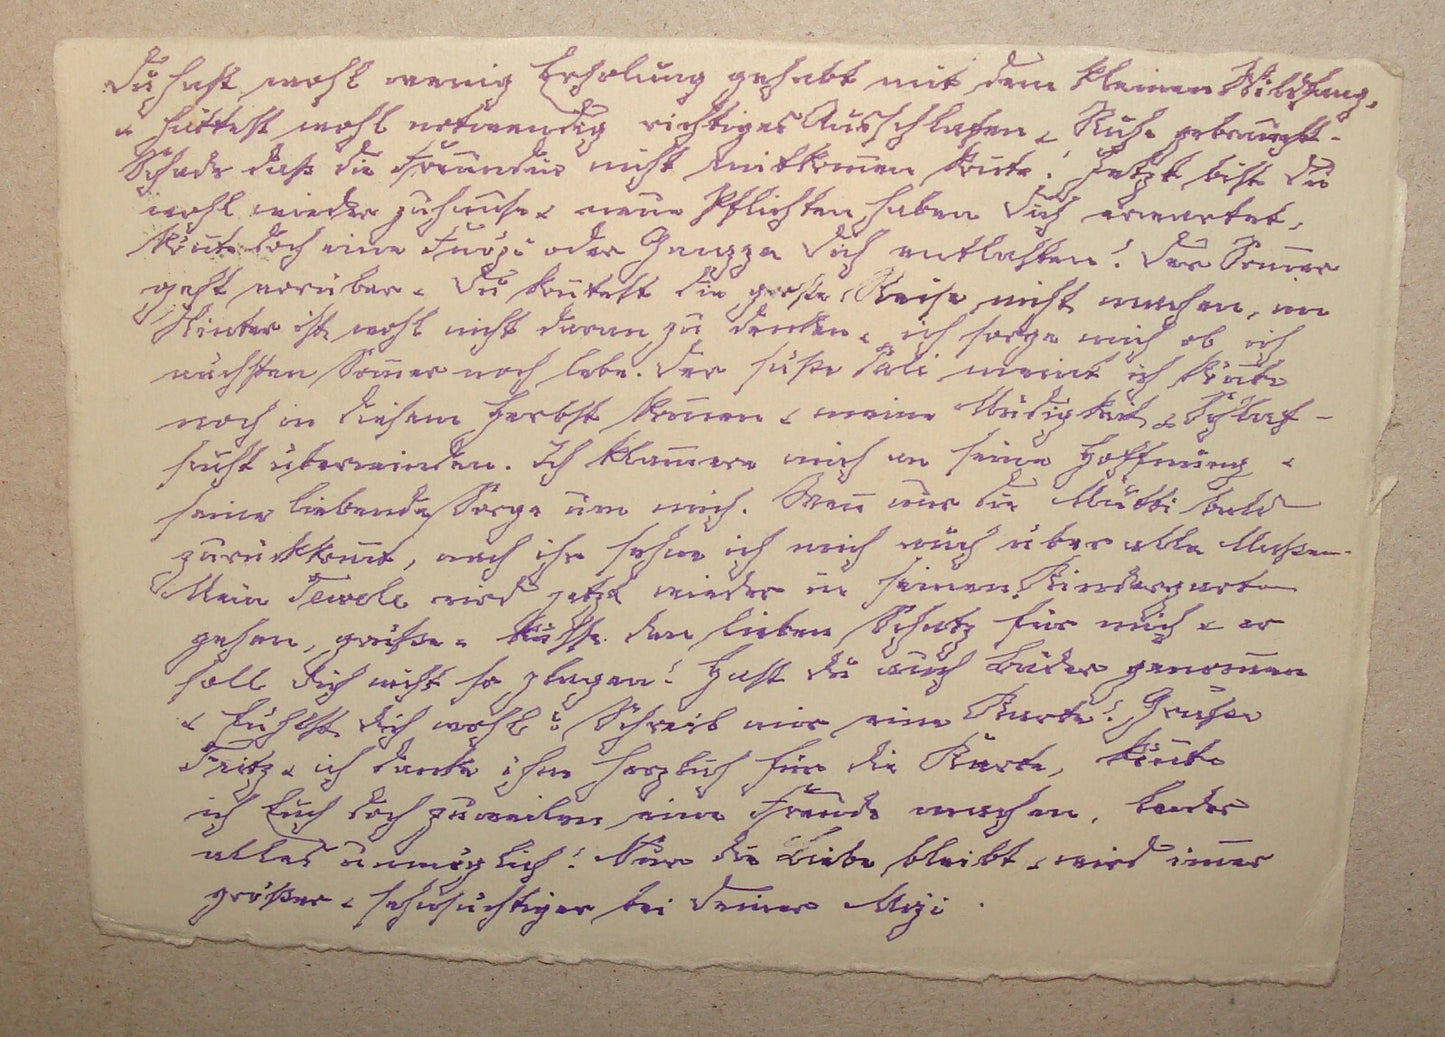 Du hast wohl wenig Erholung gehabt mit dem kleinen Wildfang,
u. hättest wohl notwendig richtiges Ausschlafen u. Ruhe gebraucht.
Schade daß die Freundin nicht mitkom̄en kon̄te! Jetzt bist Du
wohl wieder zuhause u. neue Pflichten haben Dich erwartet,
kön̄te doch eine oder Dich entlasten! Der Som̄er
geht vorüber u. Du kon̄test die große Reise nicht machen, im
Winter ist wohl nicht daran zu denken u. ich sorge mich ob ich
nächsten Som̄er noch lebe. Der süße meint ich kön̄te
noch in diesem Herbst kom̄en u. meine Müdigkeit u. Schlaf-
sucht überwinden. Ich klam̄ere mich an seine Hoffnung u.
seine liebende Sorge um mich. Wen̄ nur die Mutti bald
zurückkom̄t, nach ihr sehne ich mich auch über alle Maßen.
Mein wird jetzt wieder in seinen Kindergarten
gehen, grüße u. küsse den lieben Schatz für mich u. er
soll Dich nicht so plagen! Hast du auch Bäder genom̄en
u. fühlst dich wohl? Schreib mir eine Karte! Grüße
Fritz u. ich danke ihm herzlich für die Karte, kön̄te
ich Euch doch zuweilen eine Freude machen, leider
alles unmöglich! Nur die Liebe bleibt u. wird im̄er
größer u. sehnsüchtiger bei Deiner Mizi.